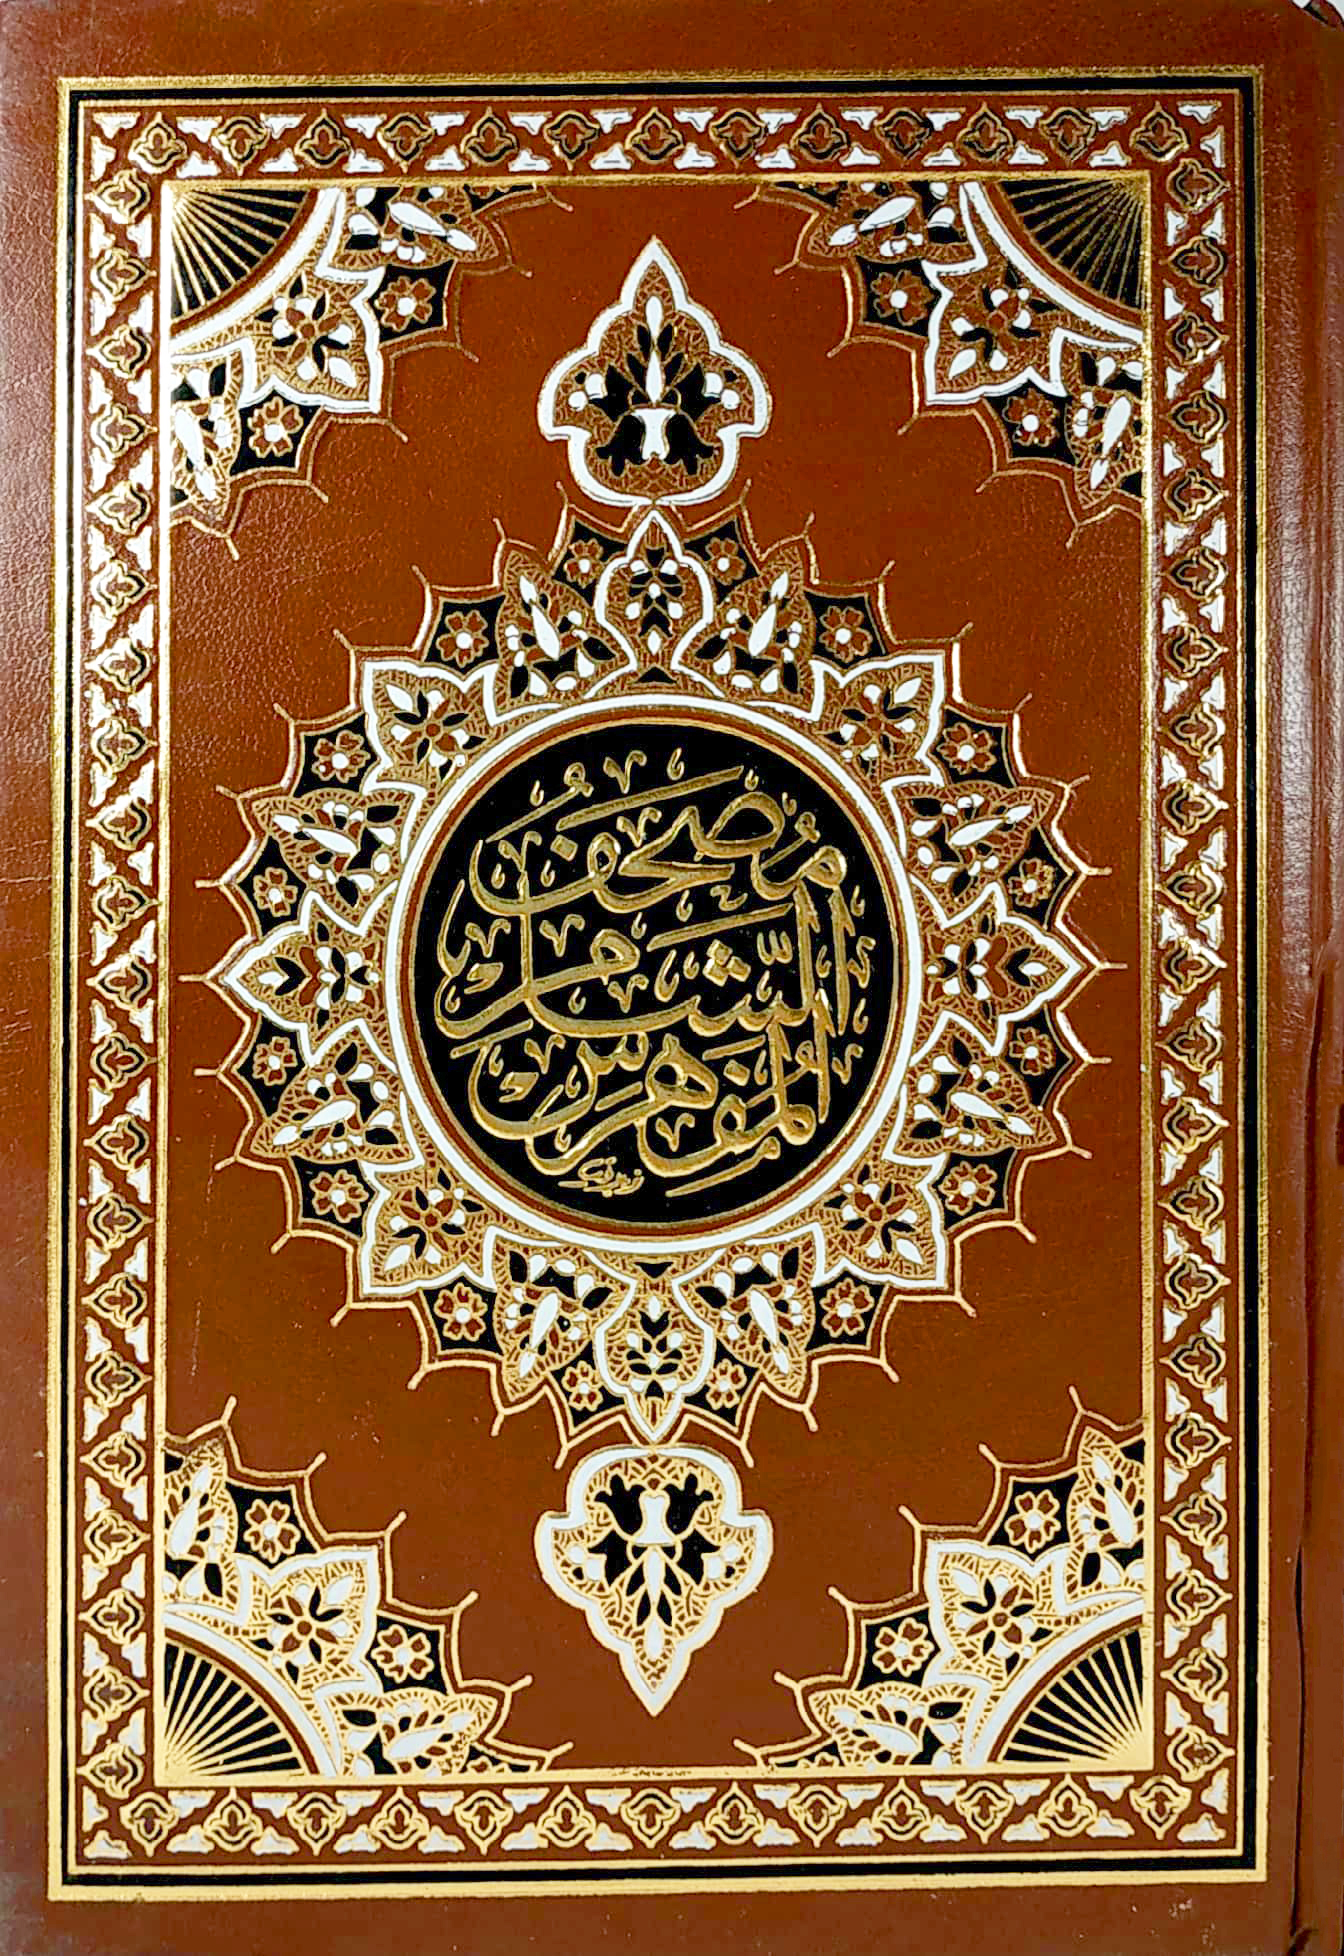 مُصْحَفُ
الشَّامِ
المُفَهْرَسِ